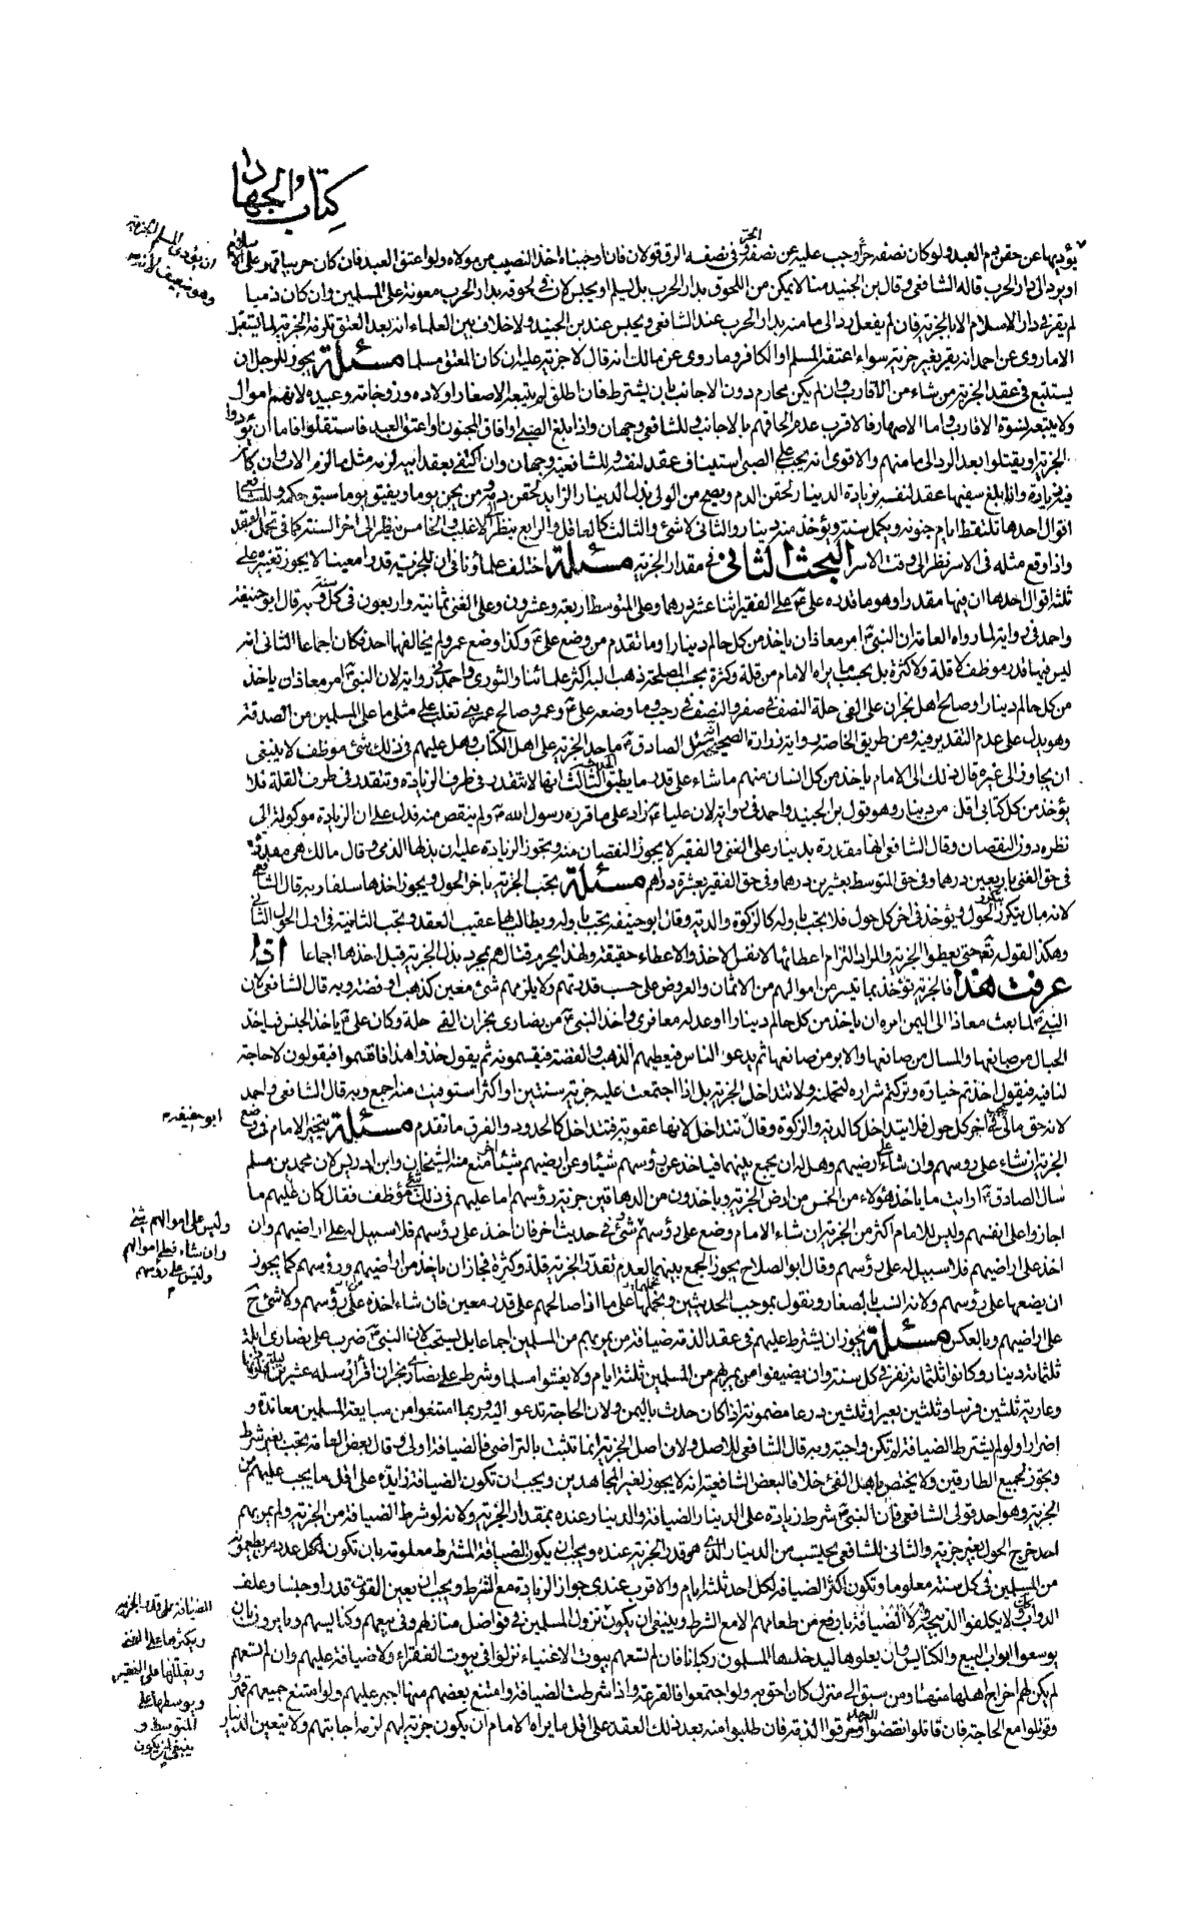 كتاب الجهاد
يؤديها عن حقن دم العبد ولو كان نصفه حرا وجب عليه عن نصفه الحر وفي نصفه الرق قولان فان اوجبناه اخذ النصيب من مولاه ولو اعتق العبد فان كان حربيا قهر على الاسلام
او يرد الى دار الحرب قاله الشافعي وقال بن الجنيد منا لا يمكن من اللحوق بدار الحرب بل يسلم او يحبس لان في لحوقه بدار الحرب معونة على المسلمين وان كان ذميا
لم يقر في دار الاسلام الا بالجزية فان لم يفعل رد الى مامنه بدار الحرب عند الشافعي ويحبس عند بن الجنيد ولا خلاف بين العلماء انه بعد العتق تلزمه الجزية لما يستقبل
الا ما روى عن احمد انه يقر بغير جزية سواء اعتقه المسلم او الكافر وما روى عن مالك انه قال لا جزية عليه ان كان المعتق مسلما مسئلة يجوز للرجل ان
يستتبع في عقد الجزية من شاء من الاقارب وان لم يكن محارم دون الاجانب بان يشترط فان اطلق لم يتبعه الا صغار اولاده وزوجاته وعبيده لانهم اموال
ولا يتبعه نسوة الاقارب واما الاصهار فالاقرب عدم الحاقهم بالاجانب وللشافعي وجهان واذا بلغ الصبي او افاق المجنون او اعتق العبد فاستقلوا فاما ان يؤدوا
الجزية او يقتلوا بعد الرد الى مامنهم والاقوى انه يجب على الصبي استيناف عقد لنفسه وللشافعية وجهان وان اكتفى بعقد ابيه لزمه مثل ما لزم الاب وان كان
فيه زيادة واذا بلغ سفيها عقد لنفسه بزيادة الدينار لحقن الدم ويصح من الولي بذل الدينار الزايد لحقن دمه ومن يجن يوما ويفيق يوما سبق حكمه وللشافعي
اقوال احدها تلتقط ايام جنونه ويكمل سنة ويؤخذ منه دينار والثاني لا شئ والثالث كالعاقل والرابع ينظر الى الاغلب والخامس ينظر الى اخر السنة كما في تحمل العقل
واذا وقع مثله في الاسر نظر الى وقت الاسر البحث الثاني في مقدار الجزية مسئلة اختلف علماؤنا في ان للجزية قدرا معينا لا يجوز تغييره على
ثلثة اقوال احدها ان فيها مقدرا وهو ما قدره علي على الفقير اثنا عشر درهما وعلى المتوسط اربعة وعشرون وعلى الغني ثمانية واربعون في كل سنة وبه قال ابو حنيفة
واحمد في رواية لما رواه العامة ان النبي امر معاذا ان ياخذ من كل حالم دينارا وما تقدم من وضع علي وكذا وضع عمر ولم يخالفهما احد فكان اجماعا الثاني انه
ليس فيها قدر موظف لا قلة ولا كثرة بل بحسب ما يراه الامام من قلة وكثرة بحسب المصلحة ذهب اليه اكثر علمائنا والثوري واحمد في رواية لان النبي امر معاذا ان ياخذ
من كل حالم دينارا وصالح اهل نجران على الفي حلة النصف في صفر والنصف في رجب وما وضعه علي وعمر وصالح عمر بني تغلب على مثلي ما على المسلمين من الصدقة
وهو يدل على عدم التقدير فيه ومن طريق الخاصة رواية زرارة الصحيحة انه سئل الصادق ما حد الجزية على اهل الكتاب وهل عليهم في ذلك شئ موظف لا ينبغي
ان يجاوز الى غيره قال ذلك الى الامام ياخذ من كل انسان منهم ما شاء على قدر ما يطيق الثالث انها لا تتقدر في طرف الزيادة وتتقدر في طرف القلة فلا
يؤخذ من كل كتابي اقل من دينار وهو قول بن الجنيد واحمد في رواية لان عليا زاد على ما قرره رسول الله ولم ينقص منه فدل على ان الزيادة موكولة الى
نظره دون النقصان وقال الشافعي انها مقدرة بدينار على الغني والفقير لا يجوز النقصان منه ويجوز الزيادة عليه ان بذلها الذمي وقال مالك هي مقدرة
في حق الغني باربعين درهما وفي حق المتوسط بعشرين درهما وفي حق الفقير بعشرة دراهم مسئلة يجب الجزية باخر الحول ويجوز اخذها سلفا وبه قال الشافعي
لانه مال يتكرر بتكرر الحول ويؤخذ في اخر كل حول فلا يجب باوله كالزكوة والدية وقال ابو حنيفة يجب باوله ويطالب بها عقيب العقد ويجب الثانية في اول الحول الثاني
وهكذا القوله تعالى حتى يعطوا الجزية والمراد التزام اعطائها لا نفس الاخذ والاعطاء حقيقة ولهذا يحرم قتالهم بمجرد بذل الجزية قبل اخذها اجماعا اذا
عرفت هذا فالجزية تؤخذ بما تيسر من اموالهم من الاثمان والعروض على حسب قدرتهم ولا يلزمهم شئ معين كذهب او فضة وبه قال الشافعي لان
النبي لما بعث معاذا الى اليمن امره ان ياخذ من كل حالم دينارا او عدله معافري واخذ النبي من نصارى نجران الفي حلة وكان علي ياخذ الجنس فياخذ
الحبال من صانعها والمسال من صانعها والابر من صانعها ثم يدعو الناس فيعطيهم الذهب والفضة فيقسمونه ثم يقول خذوا هذا فاقتسموا فيقولون لا حاجة
لنا فيه فيقول اخذتم خياره وتركتم شراره لتحملنه ولا تتداخل الجزية بل اذا اجتمعت عليه جزية سنتين او اكثر استوفيت منه اجمع وبه قال الشافعي واحمد
لانه حق مالي يجب في اخر كل حول فلا يتداخل كالدية والزكوة وقال تتداخل لانها عقوبة فتتداخل كالحدود والفرق ما تقدم مسئلة يتخير الامام في وضع
الجزية ان شاء على رؤسهم وان شاء على ارضيهم وهل له ان يجمع بينهما فياخذ عن رؤسهم شيئا وعن ارضيهم شيئا اخر منع منه الشيخان وابن ادريس لان محمد بن مسلم
سال الصادق ارايت ما ياخذ هؤلاء من الخمس من ارض الجزية وياخذون من الدهاقين جزية رؤسهم اما عليهم في ذلك شئ مؤظف فقال كان عليهم ما
اجازوا على انفسهم وليس للامام اكثر من الجزية ان شاء الامام وضع على رؤسهم شئ وفي حديث اخر فان اخذ على رؤسهم فلا سبيل له على اراضيهم وان
اخذ على اراضيهم فلا سبيل له على رؤسهم وقال ابو الصلاح يجوز الجمع بينهما لعدم تقدر الجزية قلة وكثرة فجاز ان ياخذ من اراضيهم ورؤسهم كما يجوز
ان يضعها على رؤسهم ولانه انسب بالصغار ونقول بموجب الحديثين ونحملهما على ما اذا صالحهم على قدر معين فان شاء اخذه من رؤسهم ولا شئ ح
على اراضيهم وبالعكس مسئلة يجوز ان يشترط عليهم في عقد الذمة ضيافة من يمر بهم من المسلمين اجماعا بل يستحب لان النبي ضرب على نصارى ايلة
ثلثمائة دينار وكانوا ثلثمائة نفر في كل سنة وان يضيفوا من يمر بهم من المسلمين ثلثة ايام ولا يغشوا مسلما وشرط على نصارى نجران اقراء رسله عشرين ليلة فما دونها
وعارية ثلثين فرسا وثلثين بعيرا وثلثين درعا مضمونة اذا كان حدث باليمن ولان الحاجة تدعو اليه وربما امتنعوا من مبايعة المسلمين معاندة و
اضرارا ولو لم يشترط الضيافة لم تكن واجبة وبه قال الشافعي للاصل ولان اصل الجزية انما تثبت بالتراضي فالضيافة اولى وقال بعض العامة يجب بغير شرط
ويجوز لجميع الطارقين ولا يختص باهل الفئ خلافا لبعض الشافعية انه لا يجوز لغير المجاهدين ويجب ان تكون الضيافة زايدة على اقل ما يجب عليهم من
الجزية وهو احد قولي الشافعي فان النبي شرط زيادة على الدينار الضيافة والدينار عنده بمقدار الجزية ولانه لو شرط الضيافة من الجزية ولم يمر بهم
احد خرج الحول بغير جزية والثاني للشافعي يحتسب من الدينار الذي هو قدر الجزية عنده ويجب ان يكون الضيافة المشترط معلومة بان تكون لكل عدد من يطعمونه
من المسلمين في كل سنة معلوما وتكون اكثر الضيافة لكل احد ثلثة ايام والاقرب عندي جواز الزيادة مع الشرط ويجب ان يعين القوت قدرا وجنسا وعلف
الدواب ولا يكلفوا الذبيحة ولا الضيافة بارفع من طعامهم الا مع الشرط وينبغي ان يكون نزول المسلمين في فواضل منازلهم وفي بيعهم وكنايسهم ويامرون بان
يوسعوا ابواب البيع والكنايس وان يعلوها ليدخلها المسلمون ركبانا فان لم تسعهم بيوت الاغنياء نزلوا في بيوت الفقراء ولا ضيافة عليهم وان لم تسعهم
لم يكن لهم اخراج اهلها منها ومن سبق الى منزل كان احق به ولو اجتمعوا فالقرعة واذا شرطت الضيافة وامتنع بعضهم منها اجبر عليهم ولو امتنع جميعهم قهروا
وقوتلوا مع الحاجة فان قاتلوا نقضوا العهد وخرقوا الذمة فان طلبوا منه بعد ذلك العقد على اقل ما يراه الامام ان يكون جزية لهم لزمه اجابتهم ولا يتعين الدينار
ان يؤدي المسلم الجزية
وهو ضعيف لانه
ابو حنيفة
وليس على اموالهم شئ
وان شاء فعلى اموالهم
وليس على رؤسهم
الضيافة على قدر الجزية
ويكثرها على الغني
ويقللها على الفقير
ويوسطها على
المتوسط و
ينبغي ان يكون